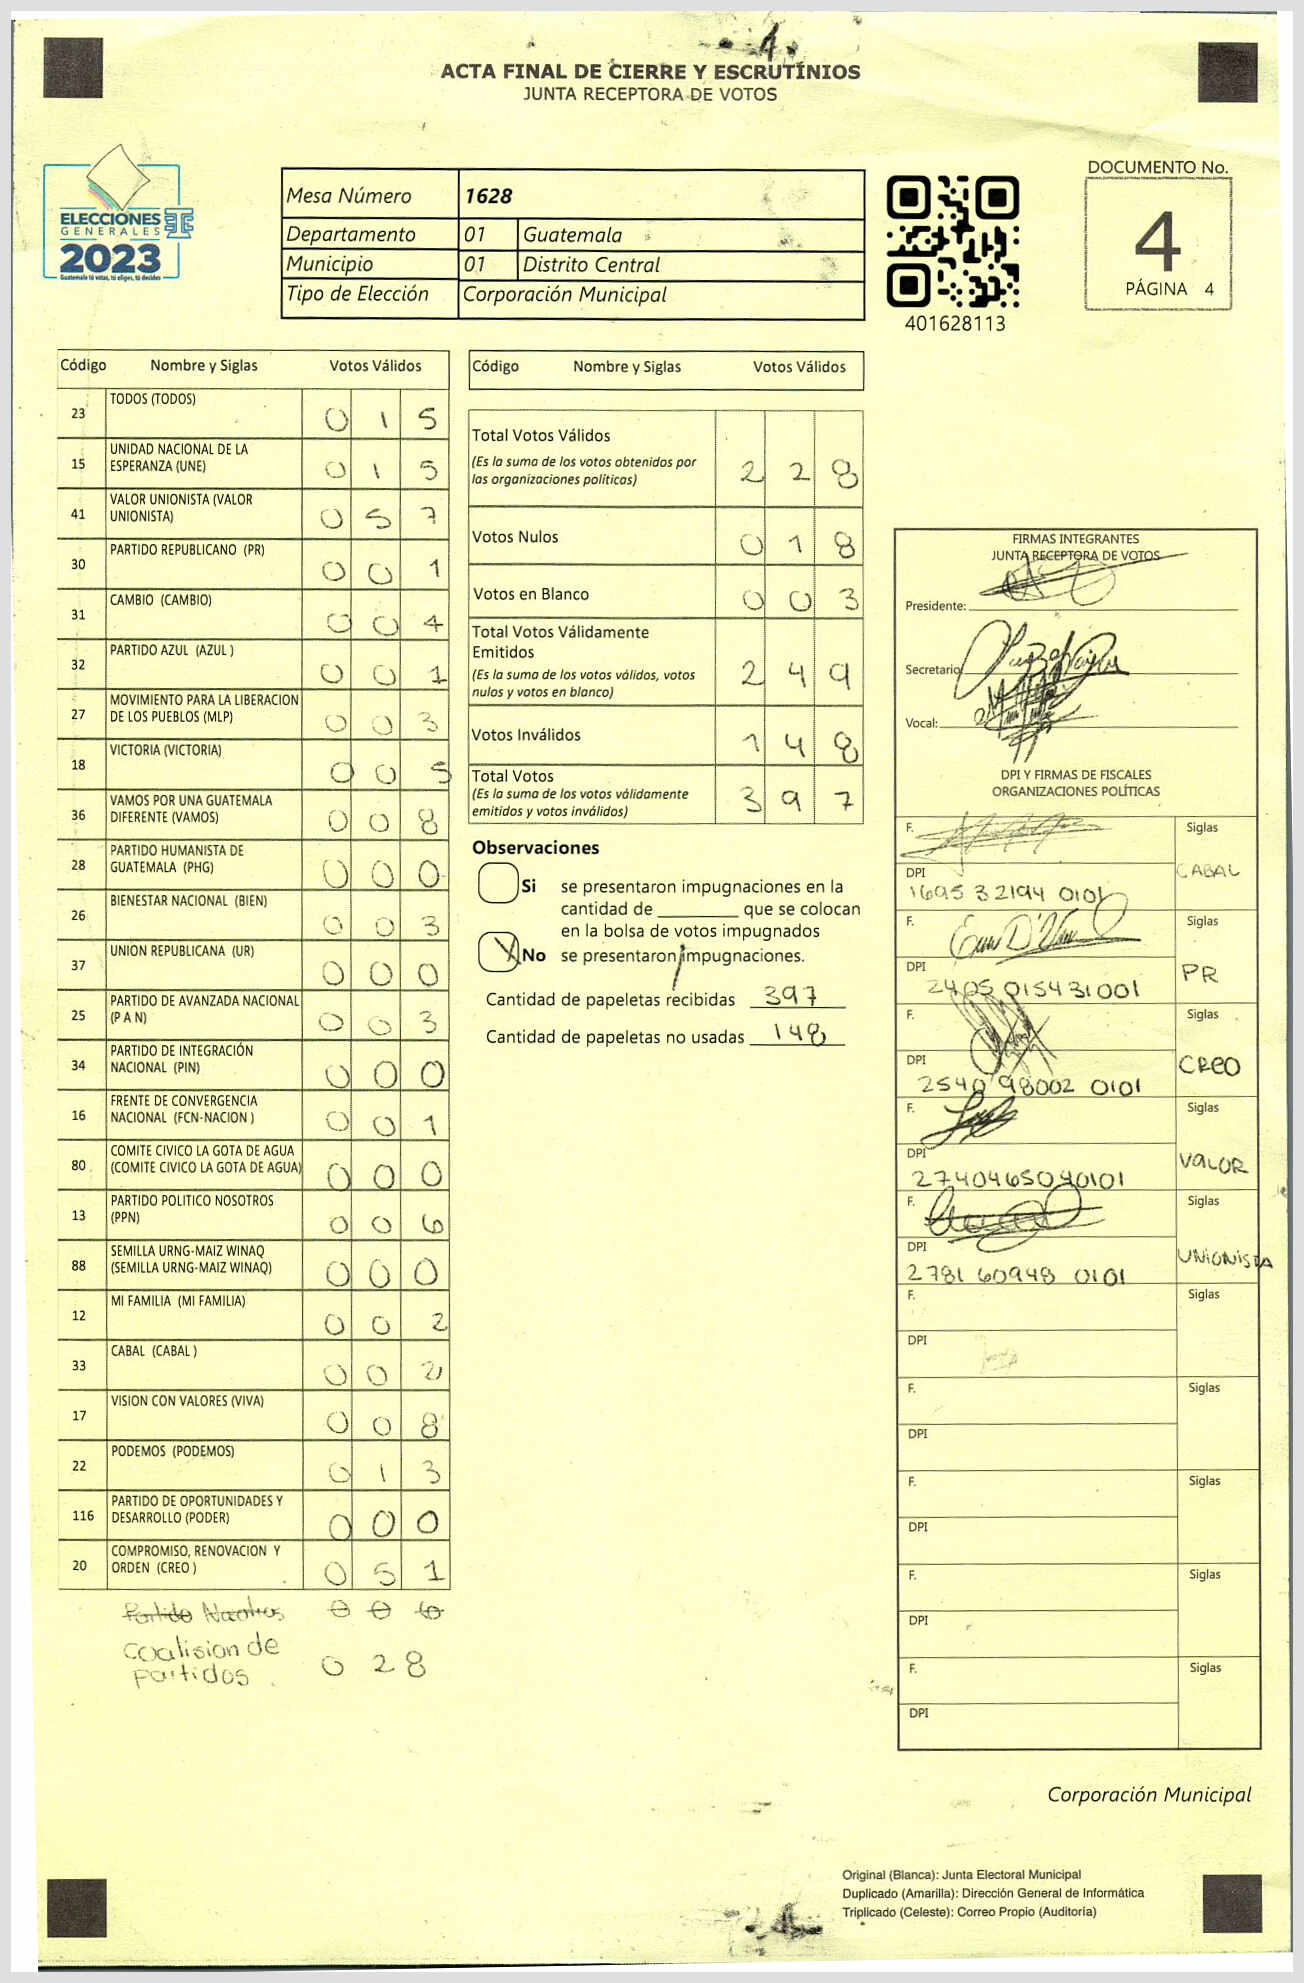 ACTA FINAL DE CIERRE Y ESCRUTINIOS
JUNTA RECEPTORA DE VOTOS
ELECCIONES
GENERALES
2023
Guatemala tú votas, tú eliges, tú decides
Mesa Número 1628
Departamento 01 Guatemala
Municipio 01 Distrito Central
Tipo de Elección Corporación Municipal
401628113
DOCUMENTO No.
4
PÁGINA 4
Código Nombre y Siglas Votos Válidos
23 TODOS (TODOS) 0 1 5
15 UNIDAD NACIONAL DE LA
ESPERANZA (UNE) 0 1 5
41 VALOR UNIONISTA (VALOR
UNIONISTA) 0 5 7
30 PARTIDO REPUBLICANO (PR) 0 0 1
31 CAMBIO (CAMBIO) 0 0 4
32 PARTIDO AZUL (AZUL ) 0 0 1
27 MOVIMIENTO PARA LA LIBERACION
DE LOS PUEBLOS (MLP) 0 0 3
18 VICTORIA (VICTORIA) 0 0 5
36 VAMOS POR UNA GUATEMALA
DIFERENTE (VAMOS) 0 0 8
28 PARTIDO HUMANISTA DE
GUATEMALA (PHG) 0 0 0
26 BIENESTAR NACIONAL (BIEN) 0 0 3
37 UNION REPUBLICANA (UR) 0 0 0
25 PARTIDO DE AVANZADA NACIONAL
(P A N) 0 0 3
34 PARTIDO DE INTEGRACIÓN
NACIONAL (PIN) 0 0 0
16 FRENTE DE CONVERGENCIA
NACIONAL (FCN-NACION ) 0 0 1
80 COMITE CIVICO LA GOTA DE AGUA
(COMITE CIVICO LA GOTA DE AGUA) 0 0 0
13 PARTIDO POLITICO NOSOTROS
(PPN) 0 0 6
88 SEMILLA URNG-MAIZ WINAQ
(SEMILLA URNG-MAIZ WINAQ) 0 0 0
12 MI FAMILIA (MI FAMILIA) 0 0 2
33 CABAL (CABAL ) 0 0 2
17 VISION CON VALORES (VIVA) 0 0 8
22 PODEMOS (PODEMOS) 0 1 3
116 PARTIDO DE OPORTUNIDADES Y
DESARROLLO (PODER) 0 0 0
20 COMPROMISO, RENOVACION Y
ORDEN (CREO ) 0 5 1
Partido 0 0 6
Coalision de
partidos 0 2 8
Código Nombre y Siglas Votos Válidos
Total Votos Válidos
(Es la suma de los votos obtenidos por
las organizaciones políticas) 2 2 8
Votos Nulos 0 1 8
Votos en Blanco 0 0 3
Total Votos Válidamente
Emitidos
(Es la suma de los votos válidos, votos
nulos y votos en blanco) 2 4 9
Votos Inválidos 1 4 8
Total Votos
(Es la suma de los votos válidamente
emitidos y votos inválidos) 3 9 7
Observaciones
Si se presentaron impugnaciones en la
cantidad de ________ que se colocan
en la bolsa de votos impugnados
X No se presentaron impugnaciones.
Cantidad de papeletas recibidas 397
Cantidad de papeletas no usadas 148
FIRMAS INTEGRANTES
JUNTA RECEPTORA DE VOTOS
Presidente:
Secretario
Vocal:
DPI Y FIRMAS DE FISCALES
ORGANIZACIONES POLÍTICAS
F. Siglas
CABAL
DPI
1695 32194 0101
F. Siglas
PR
DPI
2405 015431001
F. Siglas
CREO
DPI
2540 98002 0101
F. Siglas
VALOR
DPI
2740465040101
F. Siglas
UNIONISTA
DPI
2781 60948 0101
F. Siglas
DPI
F. Siglas
DPI
F. Siglas
DPI
F. Siglas
DPI
F. Siglas
DPI
Corporación Municipal
Original (Blanca): Junta Electoral Municipal
Duplicado (Amarilla): Dirección General de Informática
Triplicado (Celeste): Correo Propio (Auditoría)